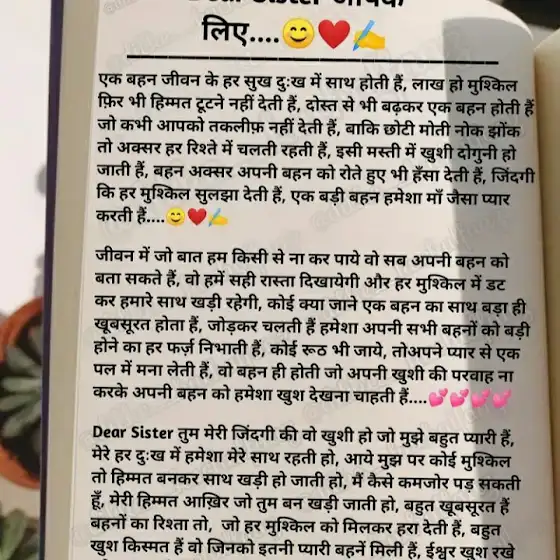 Dear Sister आपके
लिए....😊❤️✍️
एक बहन जीवन के हर सुख दुःख में साथ होती हैं, लाख हो मुश्किल
फ़िर भी हिम्मत टूटने नहीं देती हैं, दोस्त से भी बढ़कर एक बहन होती हैं
जो कभी आपको तकलीफ़ नहीं देती हैं, बाकि छोटी मोती नोक झोंक
तो अक्सर हर रिश्ते में चलती रहती हैं, इसी मस्ती में खुशी दोगुनी हो
जाती हैं, बहन अक्सर अपनी बहन को रोते हुए भी हँसा देती हैं, जिंदगी
कि हर मुश्किल सुलझा देती हैं, एक बड़ी बहन हमेशा माँ जैसा प्यार
करती हैं....😊❤️✍️
जीवन में जो बात हम किसी से ना कर पाये वो सब अपनी बहन को
बता सकते हैं, वो हमें सही रास्ता दिखायेगी और हर मुश्किल में डट
कर हमारे साथ खड़ी रहेगी, कोई क्या जाने एक बहन का साथ बड़ा ही
खूबसूरत होता हैं, जोड़कर चलती हैं हमेशा अपनी सभी बहनों को बड़ी
होने का हर फर्ज़ निभाती हैं, कोई रूठ भी जाये, तोअपने प्यार से एक
पल में मना लेती हैं, वो बहन ही होती जो अपनी खुशी की परवाह ना
करके अपनी बहन को हमेशा खुश देखना चाहती हैं....💕💕💕💕
Dear Sister तुम मेरी जिंदगी की वो खुशी हो जो मुझे बहुत प्यारी हैं,
मेरे हर दुःख में हमेशा मेरे साथ रहती हो, आये मुझ पर कोई मुश्किल
तो हिम्मत बनकर साथ खड़ी हो जाती हो, मैं कैसे कमजोर पड़ सकती
हूँ, मेरी हिम्मत आख़िर जो तुम बन खड़ी जाती हो, बहुत खूबसूरत हैं
बहनों का रिश्ता तो, जो हर मुश्किल को मिलकर हरा देती हैं, बहुत
खुश किस्मत हैं वो जिनको इतनी प्यारी बहनें मिली हैं, ईश्वर खुश रखे